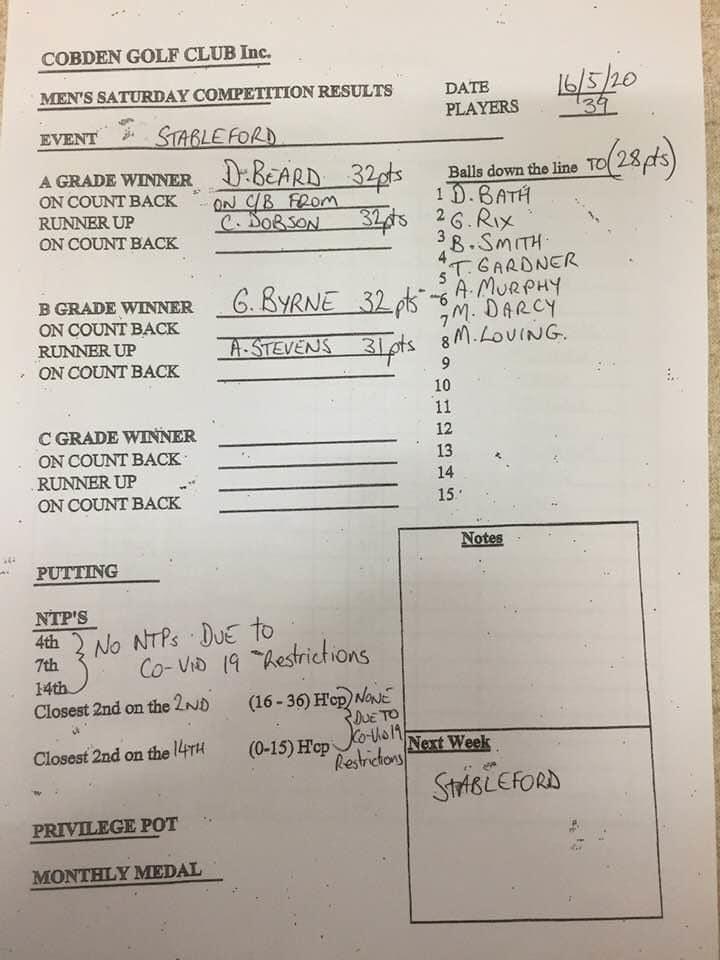 COBDEN GOLF CLUB Inc.
MEN'S SATURDAY COMPETITION RESULTS
DATE 16/5/20
PLAYERS 39
EVENT STABLEFORD
A GRADE WINNER D. BEARD 32pts
ON COUNT BACK ON C/B FROM
RUNNER UP C. DOBSON 32pts
ON COUNT BACK
B GRADE WINNER G. BYRNE 32 pts
ON COUNT BACK
RUNNER UP A. STEVENS 31 pts
ON COUNT BACK
C GRADE WINNER
ON COUNT BACK
RUNNER UP
ON COUNT BACK
Balls down the line TO (28pts)
1 D. BATH
2 G. RIX
3 B. SMITH
4 T. GARDNER
5 A. MURPHY
6 M. DARCY
7 M. LOVING.
8
9
10
11
12
13
14
15
PUTTING
NTP'S
4th
7th
14th
NO NTPs DUE TO
CO-VID 19 Restrictions
Closest 2nd on the 2ND (16 - 36) H'cp
Closest 2nd on the 14TH (0-15) H'cp
NONE
DUE TO
Co-Vid 19
Restrictions
PRIVILEGE POT
MONTHLY MEDAL
Notes
Next Week
STABLEFORD